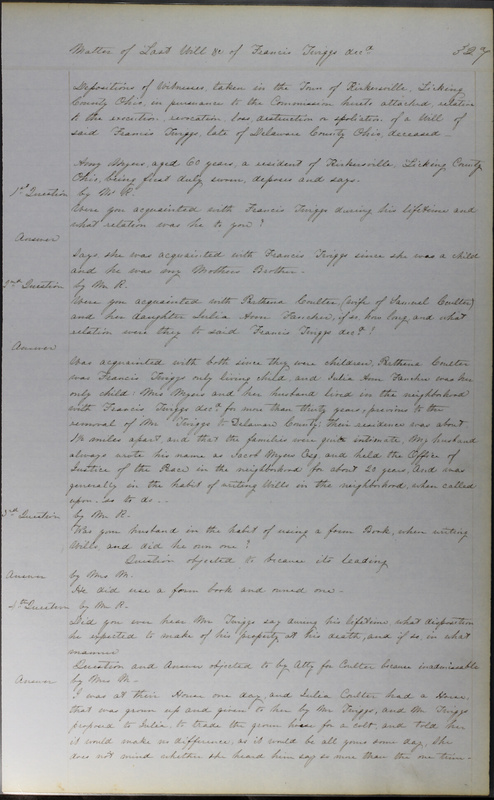 Matter of Last Will &c of Francis Twiggs decd.
Depositions of Witnesses, taken in the Town of Kirkersville, Licking
County Ohio, in pursuance to the Commission hereto attached, relative
to the execution, revocation, loss, destruction or spoliation, of a Will of
said Francis Twiggs, late of Delaware County Ohio, deceased -
Amy Myers, aged 60 years, a resident of Kirkersville, Licking County
Ohio, being first duly sworn, deposes and says -
1st Question by Mr R.
Were you acquainted with Francis Twiggs during his lifetime and
what relation was he to you?
Answer
Says she was acquainted with Francis Twiggs since she was a child
and he was my Mothers Brother -
2nd Question by Mr R.
Were you acquainted with Rethena Coulter (wife of Samuel Coulter)
and her daughter Julia Ann Fancher, if so, how long, and what
relation were they to said Francis Twiggs decd?
Answer
Was acquainted with both since they were children, Rethena Coulter
was Francis Twiggs only living child, and Julia Ann Fancher was her
only child; Mrs Myers and her husband lived in the neighborhood
with Francis Twiggs decd. for more than thirty years, previous to the
removal of Mr Twiggs to Delaware County; their residence was about
miles apart, and that the families were quite intimate, My husband
always wrote his name as Jacob Myers Esq and held the Office of
Justice of the Peace in the neighborhood for about 20 years, And was
generally in the habit of writing Wills in the neighborhood, when called
upon so to do --
3rd Question by Mr R.
Was your husband in the habit of using a form Book, when writing
Wills, and did he own one?
Question objected to because its leading
Answer by Mrs M.
He did use a form book and owned one -
4th Question by Mr R.
Did you ever hear Mr Twiggs say during his lifetime what disposition
he expected to make of his property at his death, and if so, in what
manner
Question and Answer objected to by Atty for Coulter because inadmissable
Answer by Mrs M.
I was at their House one day, and Julia Coulter had a Horse,
that was grown up and given to her by Mr Twiggs, and Mr Twiggs
proposed to Julia to trade the grown horse for a colt, and told her
it would make no difference, as it would be all yours some day, She
does not mind whether she heard him say so more than the one time -